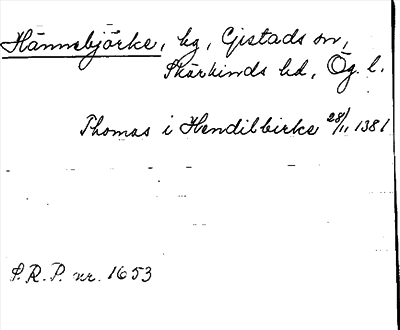 Hännebjörke, hg, Gistads sn,
Skärkinds hd, Ög. l.
Thomas i Hendilbirke 28/11 1381
S.R.P. nr. 1653